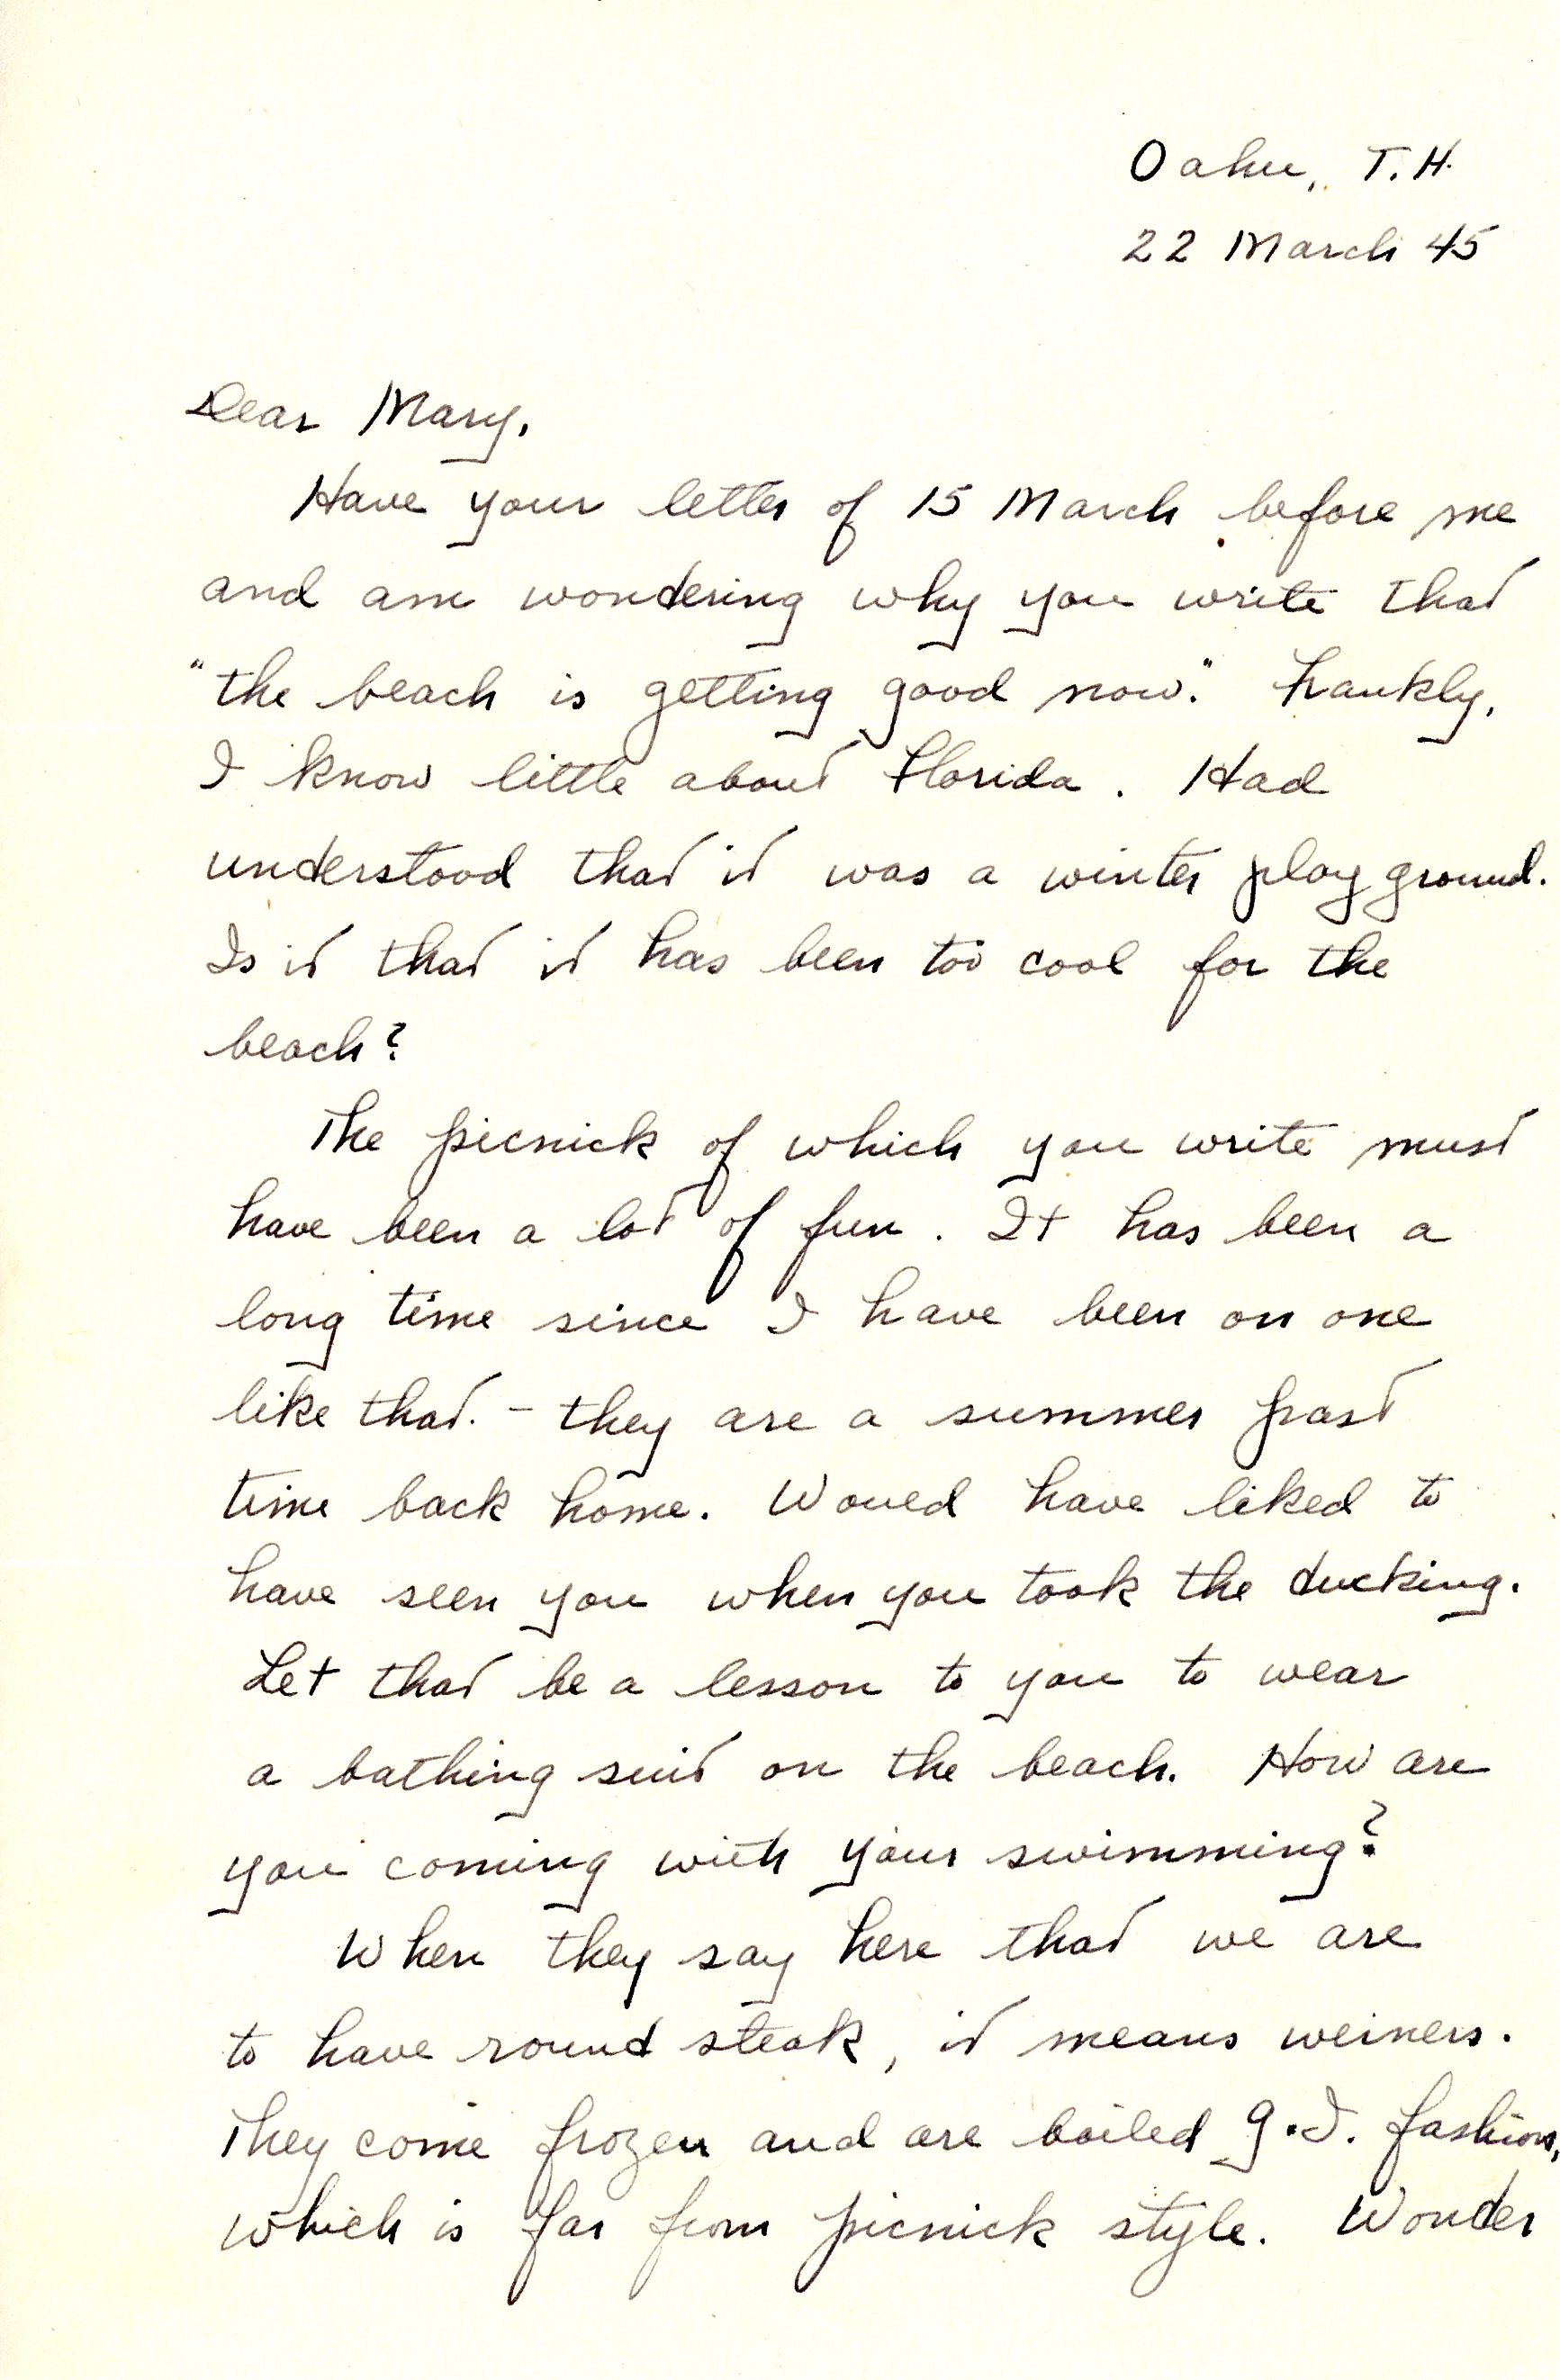 Oahu, T.H.
22 March 45
Dear Mary,
Have your letter of 15 March before me
and am wondering why you write that
"the beach is getting good now." Frankly,
I know little about Florida. Had
understood that it was a winter play ground.
Is it that it has been too cool for the
beach?
The picnick of which you write must
have been a lot of fun. It has been a
long time since I have been on one
like that. - they are a summer past
time back home. Would have liked to
have seen you when you took the ducking.
Let that be a lesson to you to wear
a bathing suit on the beach. How are
you coming with your swimming?
When they say here that we are
to have round steak, it means weiners.
They come frozen and are boiled G.I. fashion,
which is far from picnick style. Wonder